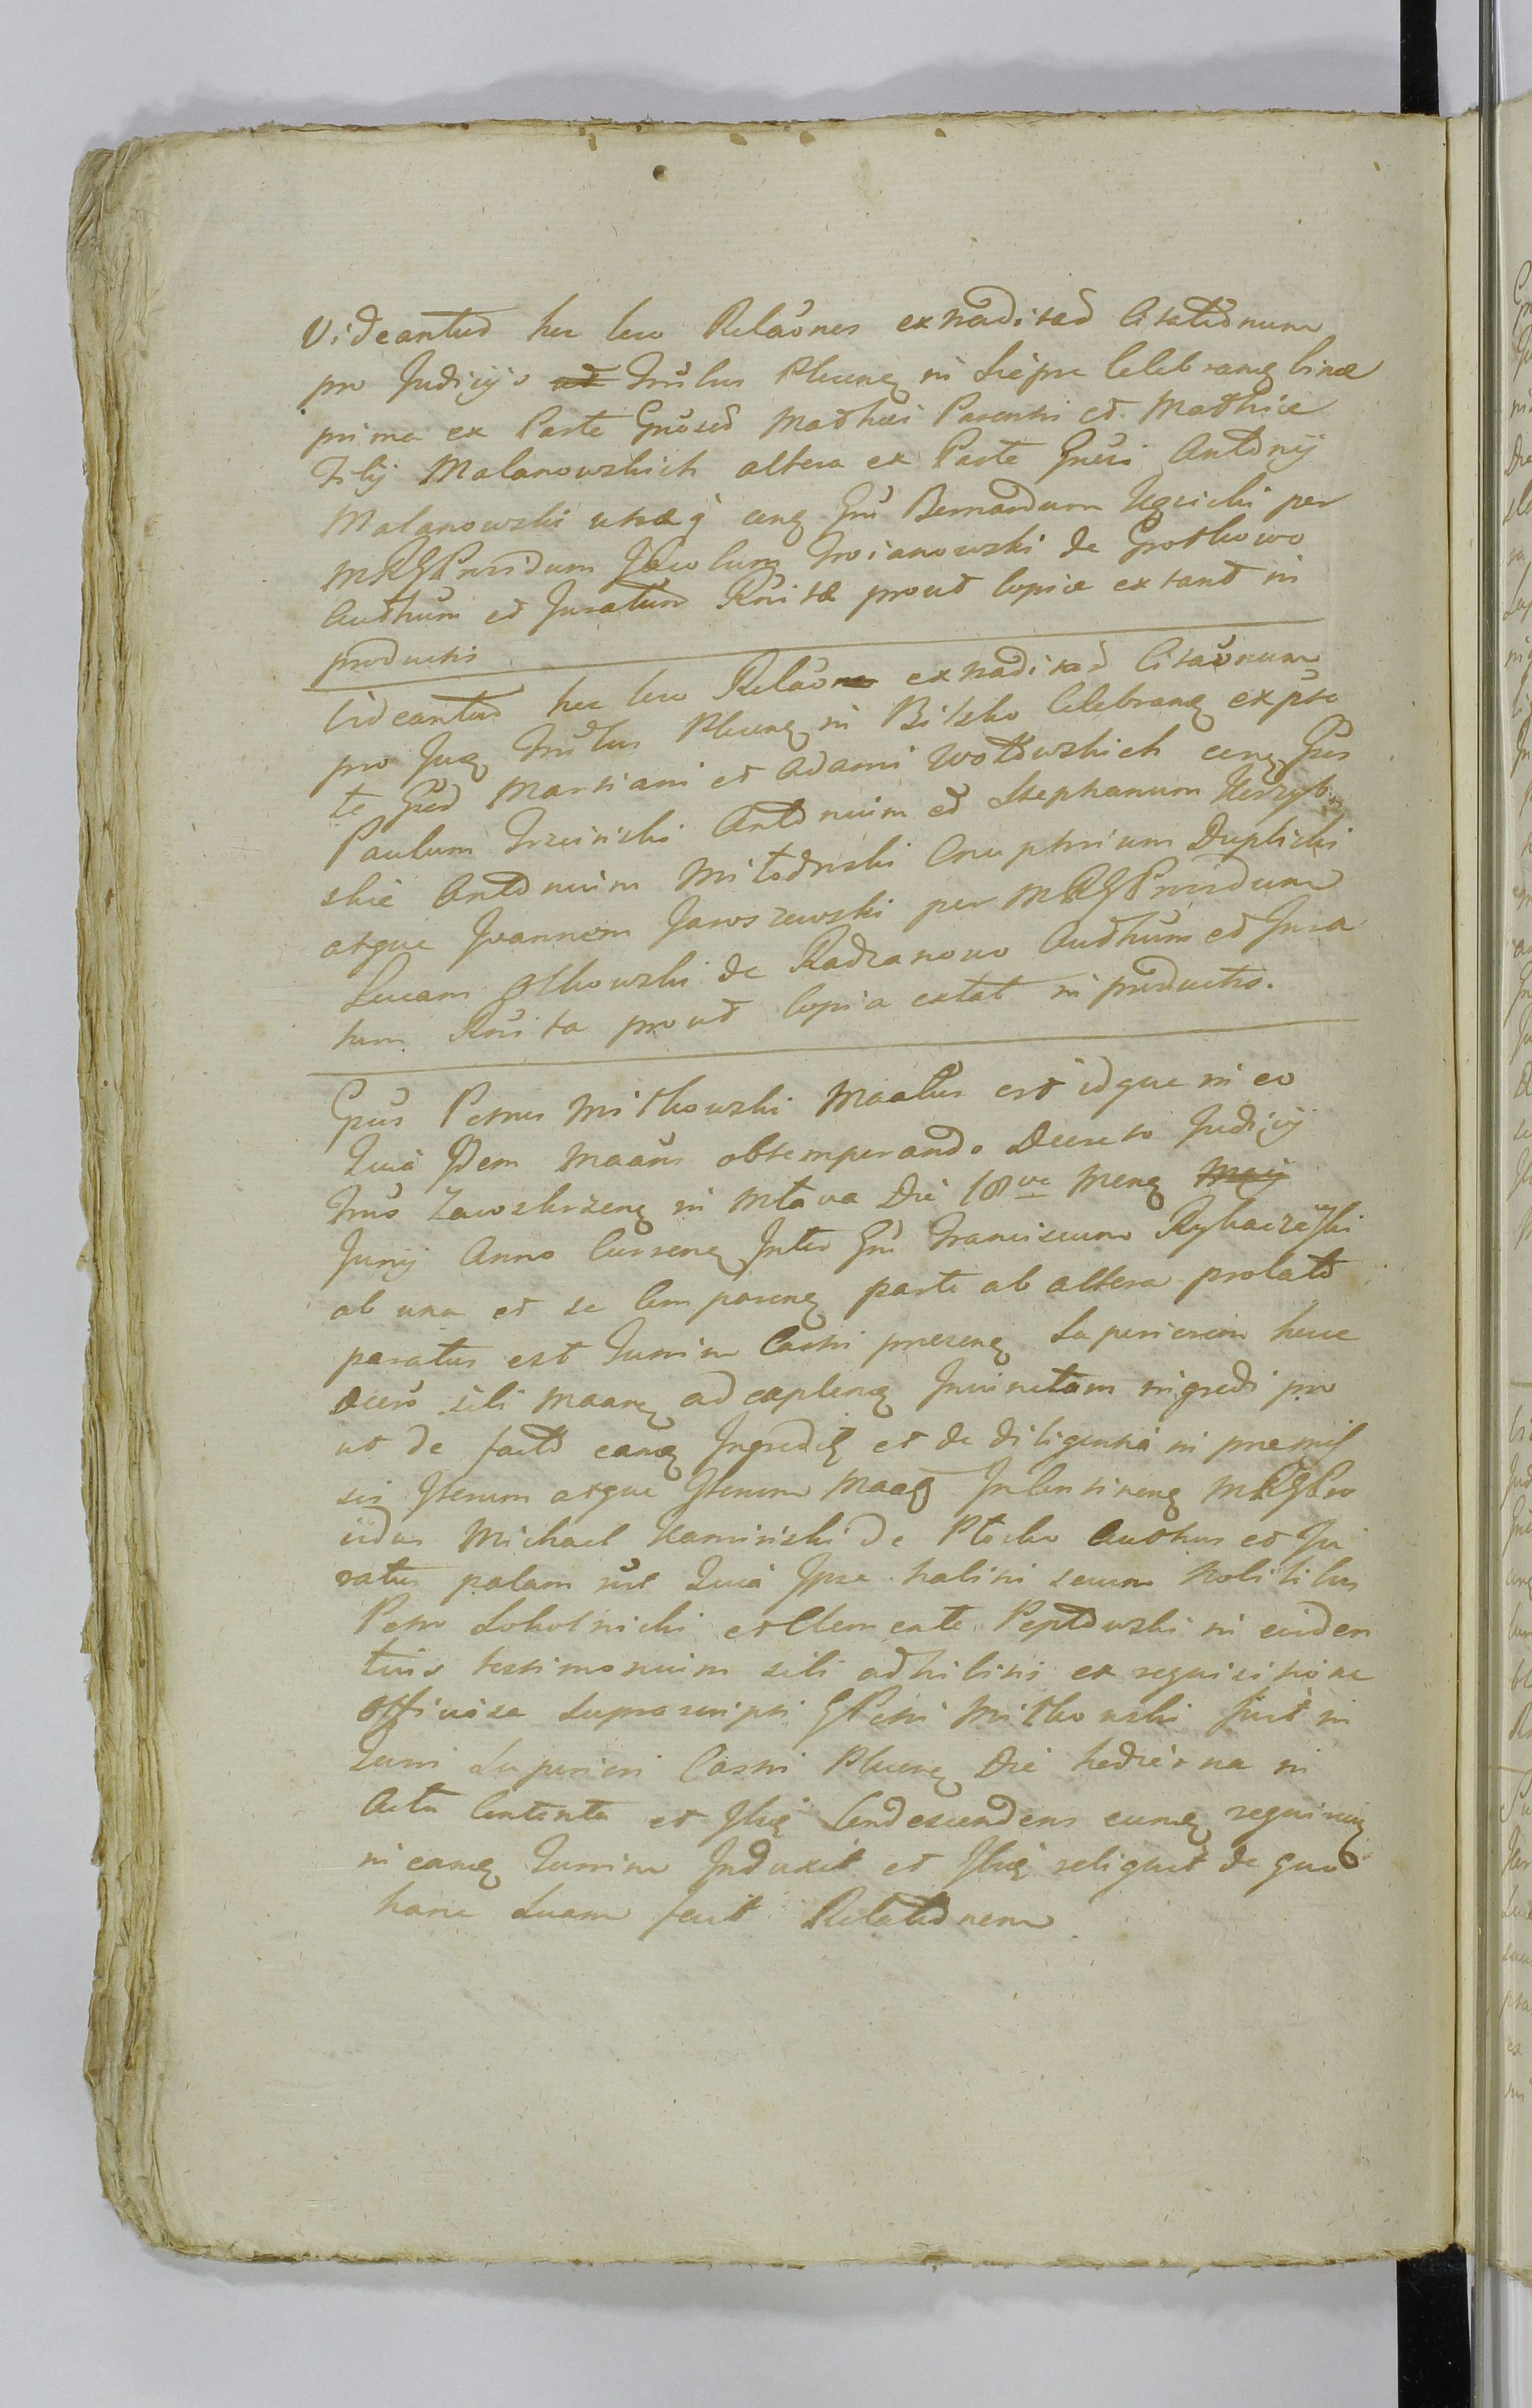 Videantur hic loco Relaones extraditar Citationum
pro Judicijs Trrlus Plocen in Siepre Celebran binæ
prima ex Parte Gnosor Mathæi Parentis et Mathiæ
Filij Malanowskich altera ex Parte Gnosi Antonij
Malanowski utraq cong Gnu Bernardum Kęsicki per
MRGProvidum Jacobum Troianowski de Grotkowo
Authum et Juratum Knitæ prout Copiæ extant in
productis
Videantur hic loco Relaone extraditar Citaonum
pro Jug Trrlus Plocen in Bilsko Celebran ex par
te Gnor Martiani et Adami Wotowskich cong Gnos
Paulum Trzcinski Antonium et Stephanum
skie Antonium Mitodrski Onuphrium Duplicki
atque Joannem Jaroszewski per MRGProvidum
Lucam Olkowski de Radzanowo Authum et Jura
tum Knita prout Copia extat in productis.
Gnus Petrus Mitkowski Maatus est idque in eo
Quia Idem Maans obtemperando Decreto Judicij
Trris Zawskrzen in Mława Die 18va Mens Maij
Junij Anno Curren Inter Gnu Franciscum Rybaczewski
ab una et se Comparen parte ab altera prolato
paratus est Turrim Castri presen Superiorem hocce
Decro sibi Maan ad explen Invinctam ingredi pro
ut de facto eang Ingredit et de diligentia in præmis
sis Iterum atque Iterum Maag In Continen MRGPro
vidus Michael Kaminski de Płocko Authus et Ju
ratus palam Quia Ipse habitis secum Nobilibus
Petro Sokolnicki et Clemente Peptowski in eviden
tius testimonium sibi adhibitis ex requisitione
Officiosa Suprascripti GPetri Mitkowski fuit in
Turri Superiori Castri Plocen Die hodierna in
Actu Contenta et Ibiq Condescendens eumq requiren
in eamq Turrim Induxit et Ibiq reliquit de quo
hanc Suam fecit Relationem